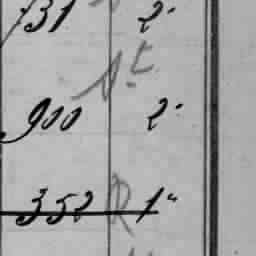 731 2"
At
900 2"
352 R 1"